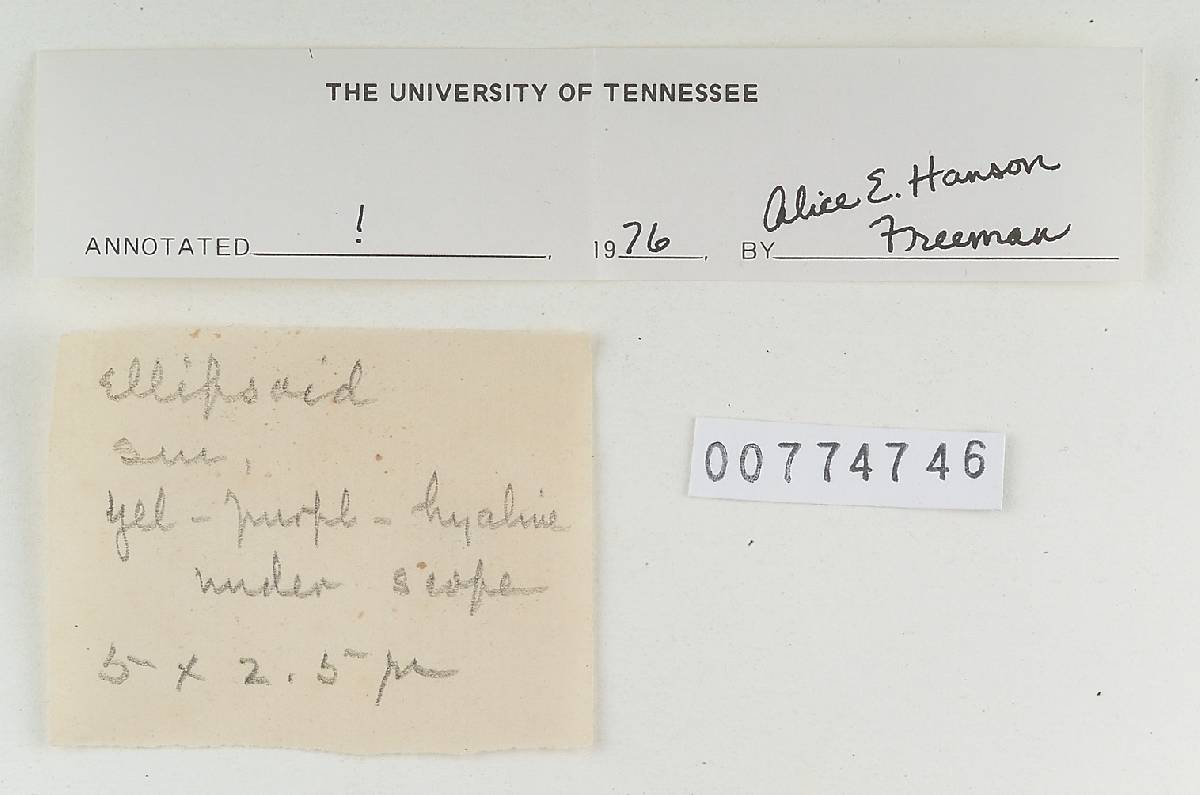 THE UNIVERSITY OF TENNESSEE
Alice E. Hanson
ANNOTATED ! , 1976, BY Freeman
ellipsoid
sm,
yel - purpl - hyaline
under scope
5 x 2.5 μ
00774746